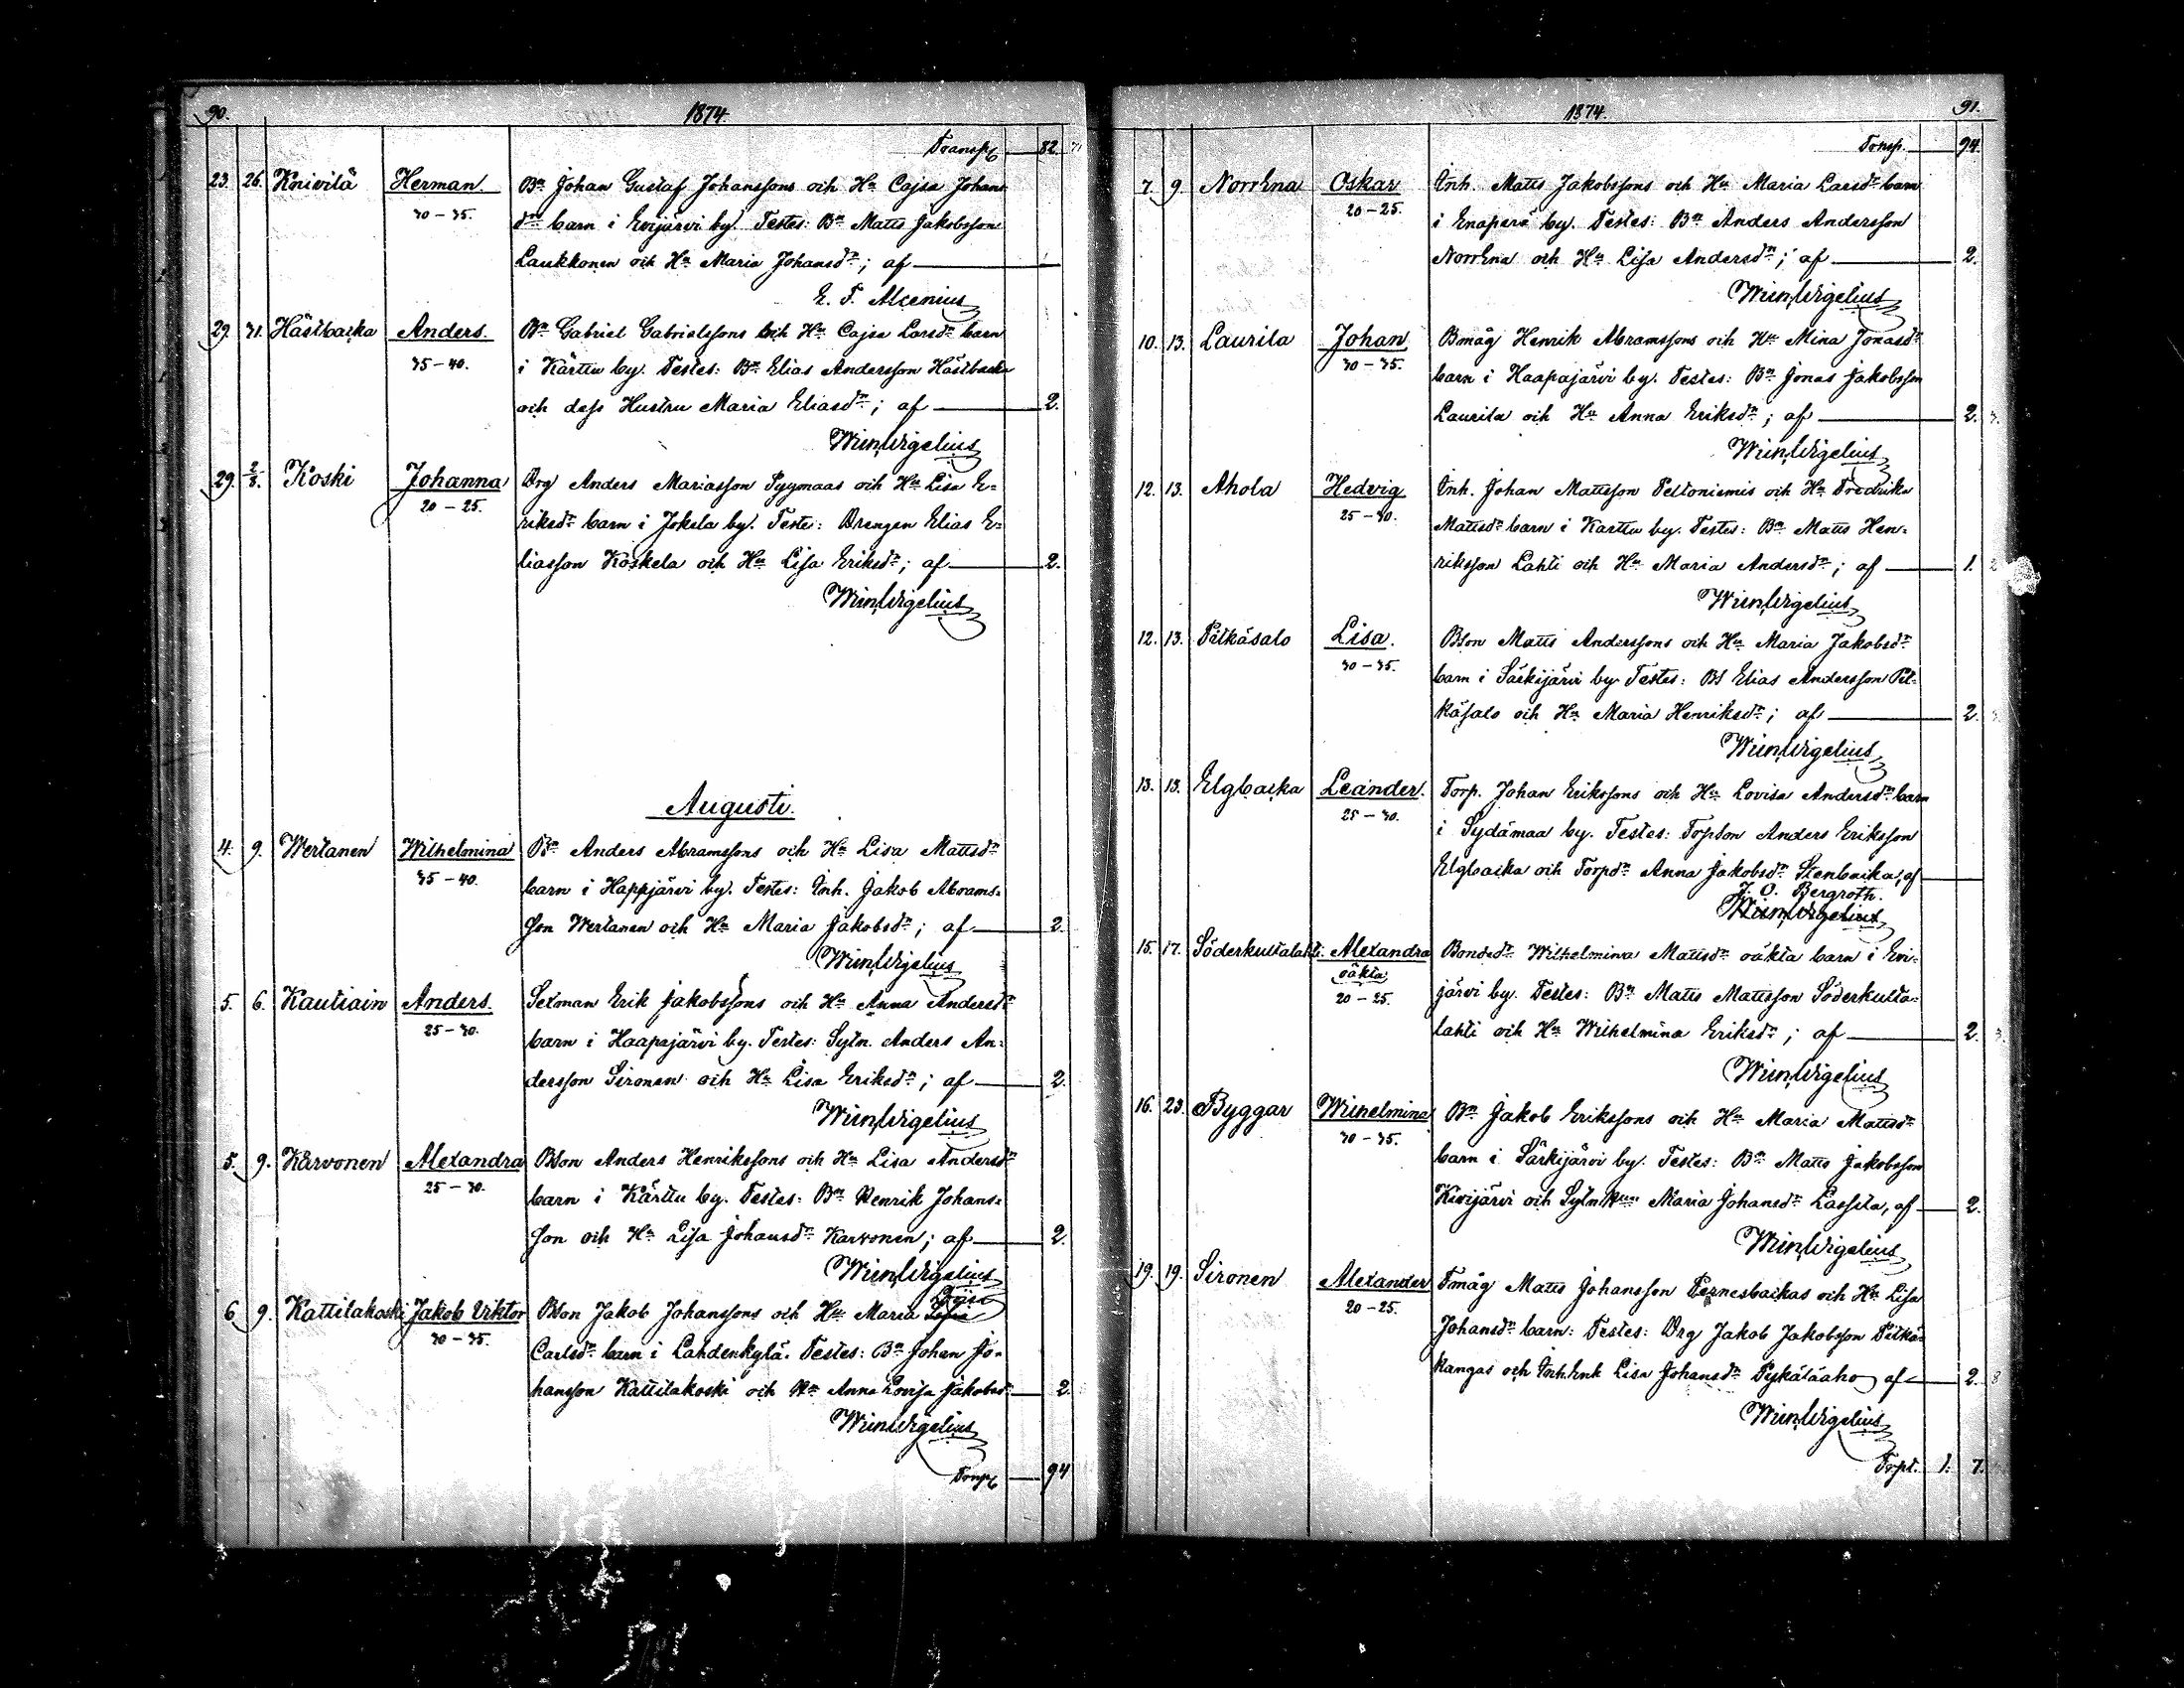 90.
1874.
Transp 82.
23. 26. Knivilä Herman. Bn Johan Gustaf Johanssons och Hu Cajsa Johans
30-35. dr barn i Evijärvi by. Testes: Bn Matts Jakobsson
Laukkonen och Hu Maria Johansdr; af
E. F. Alcenius
29. 31. Hästbacka Anders. Bn Gabriel Gabrielssons och Hu Cajsa Larsdr barn
35-40. i Kärttu by. Testes: Bn Elias Andersson Hästbacka
och dess Hustru Maria Eliasdr; af 2.
Wilh Wigelius
29. 2/8. Koski Johanna Drg Anders Mariasson Pyymaas och Hu Lisa E=
20-25. riksdr barn i Jokela by. Teste: Drengen Elias E=
liasson Koskela och Hu Lisa Eriksdr; af 2.
Wilh Wigelius
Augusti.
4. 9. Wertanen Wilhelmina Bn Anders Abramssons och Hu Lisa Mattsdr
35-40. barn i Happjärvi by. Testes: Inh. Jakob Abrams=
son Wertanen och Hu Maria Jakobsdr; af 2.
Wilh Wigelius
5. 6. Kautiain Anders. Sexman Erik Jakobssons och Hu Anna Andersdr
25-30. barn i Haapajärvi by. Testes: Sytn. Anders An=
dersson Sironen och Hu Lisa Eriksdr; af 2.
Wilh Wigelius
5. 9. Karvonen Alexandra BSon Anders Henrikssons och Hu Lisa Andersdr
25-30. barn i Kärttu by. Testes: Bn Henrik Johans=
son och Hu Lisa Johansdr Karvonen; af 2.
Wilh Wigelius
6. 9. Kattilakoski Jakob Viktor BSon Jakob Johanssons och Hu Maria
30-35. Carlsdr barn i Lahdenkylä. Testes: Bn Johan Jo=
hansson Kattilakoski och Hu Anna Lovisa Jakobsdr 2.
Wilh Wigelius
Transp 94
91.
1874.
Transp. 94.
7. 9. Norrena Oskar Inh. Matts Jakobssons och Hu Maria Larsdr barn
20-25. i Enaperä by. Testes: Bn Anders Andersson
Norrena och Hu Lisa Andersdr; af 2.
Wilh Wigelius
10. 13. Laurila Johan Bmåg Henrik Abramssons och Hu Mina Jonasdr
30-35. barn i Haapajärvi by. Testes: Bn Jonas Jakobsson
Laurila och Hu Anna Eriksdr; af 2.
Wilh Wigelius
12. 13. Ahola Hedvig Inh. Johan Mattsson Peltoniemis och Hu Fredrika
25-30. Mattsdr barn i Kärttu by. Testes: Bn Matts Hen=
riksson Lahti och Hu Maria Andersdr; af 1.
Wilh Wigelius
12. 13. Pitkäsalo Lisa. BSon Matts Anderssons och Hu Maria Jakobsdr
30-35. barn i Särkijärvi by Testes: BS Elias Andersson Pit=
käsalo och Hu Maria Henriksdr; af 2.
Wilh Wigelius
13. 13. Elgbacka Leander. Torp. Johan Erikssons och Hu Lovisa Andersdr barn
25-30. i Sydämaa by. Testes: TorpSon Anders Eriksson
Elgbacka och Torpdr Anna Jakobsdr Stenbacka, af
J. O. Bergroth.
Wilh Wigelius
15. 17. Söderkultalahti. Alexandra Bondedr Wilhelmina Mattsdr oäkta barn i Evi=
oäkta
20-25. järvi by. Testes: Bn Matts Mattsson Söderkulta=
lahti och Hu Wilhelmina Eriksdr; af 2.
Wilh Wigelius
16. 23. Byggar Wilhelmina Bn Jakob Erikssons och Hu Maria Mattsdr
30-35. barn i Särkijärvi by. Testes: Bn Matts Jakobsson
Kivijärvi och Sytn Hu Maria Johansdr Lassila, af 2.
Wilh Wigelius
19. 19. Sironen Alexander Tmåg Matts Johansson Pernesbackas och Hu Lisa
20-25. Johansdr barn: Testes: Drg Jakob Jakobsson Pitkä=
kangas och Inh.Enk Lisa Johansdr Pykäläaho af 2.
Wilh Wigelius
Trspt. 1. 7.